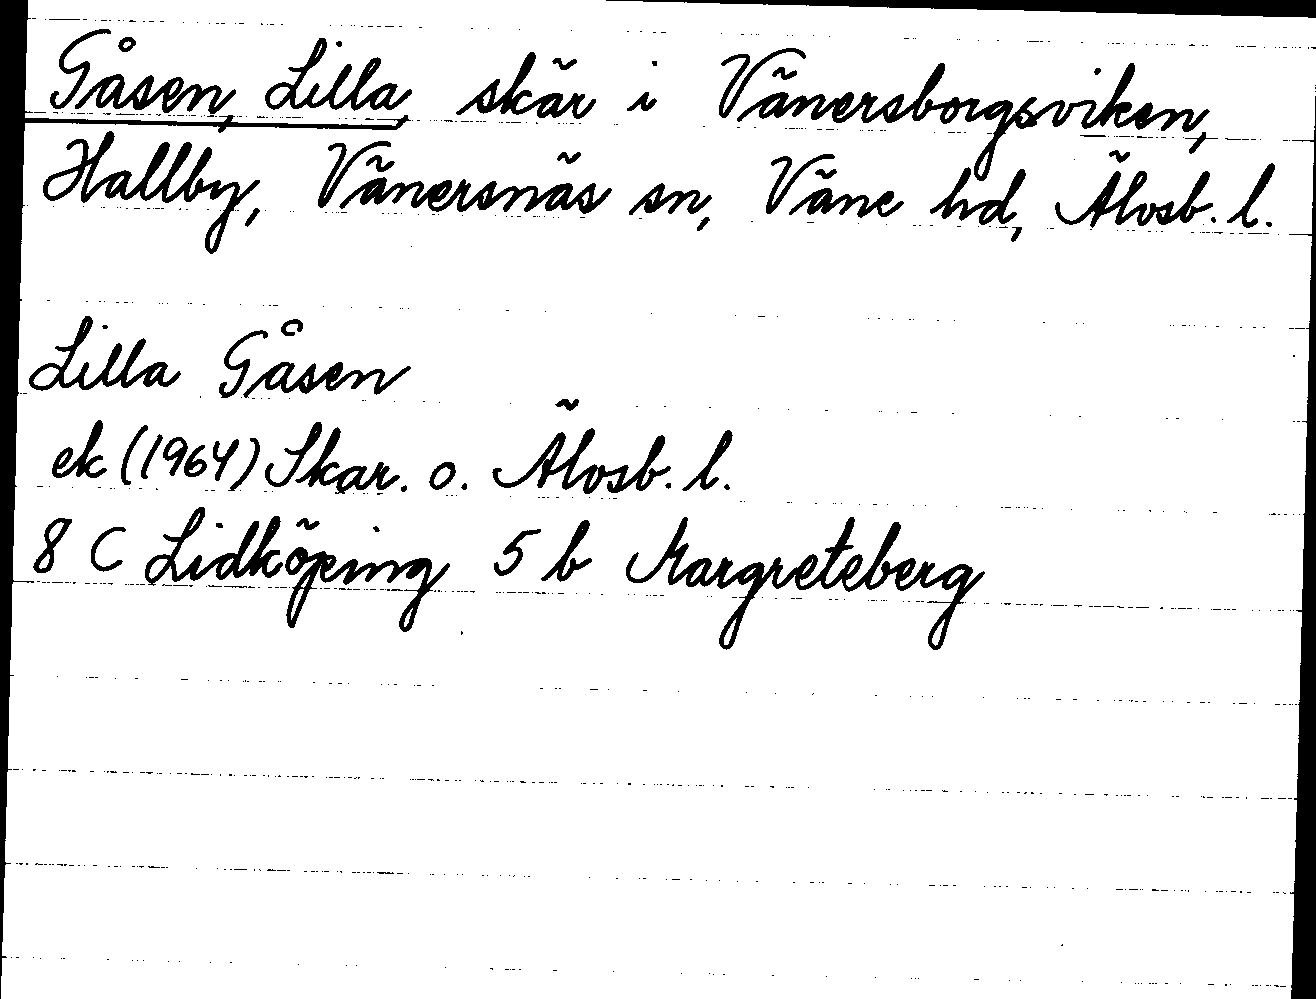 Gåsen, Lilla, skär i Vänersborgsviken,
Hallby, Vänersnäs sn, Väne hd, Älvsb. l.
Lilla Gåsen
ek (1964) Skar. o. Älvsb. l.
8 C Lidköping 5 b Margreteberg